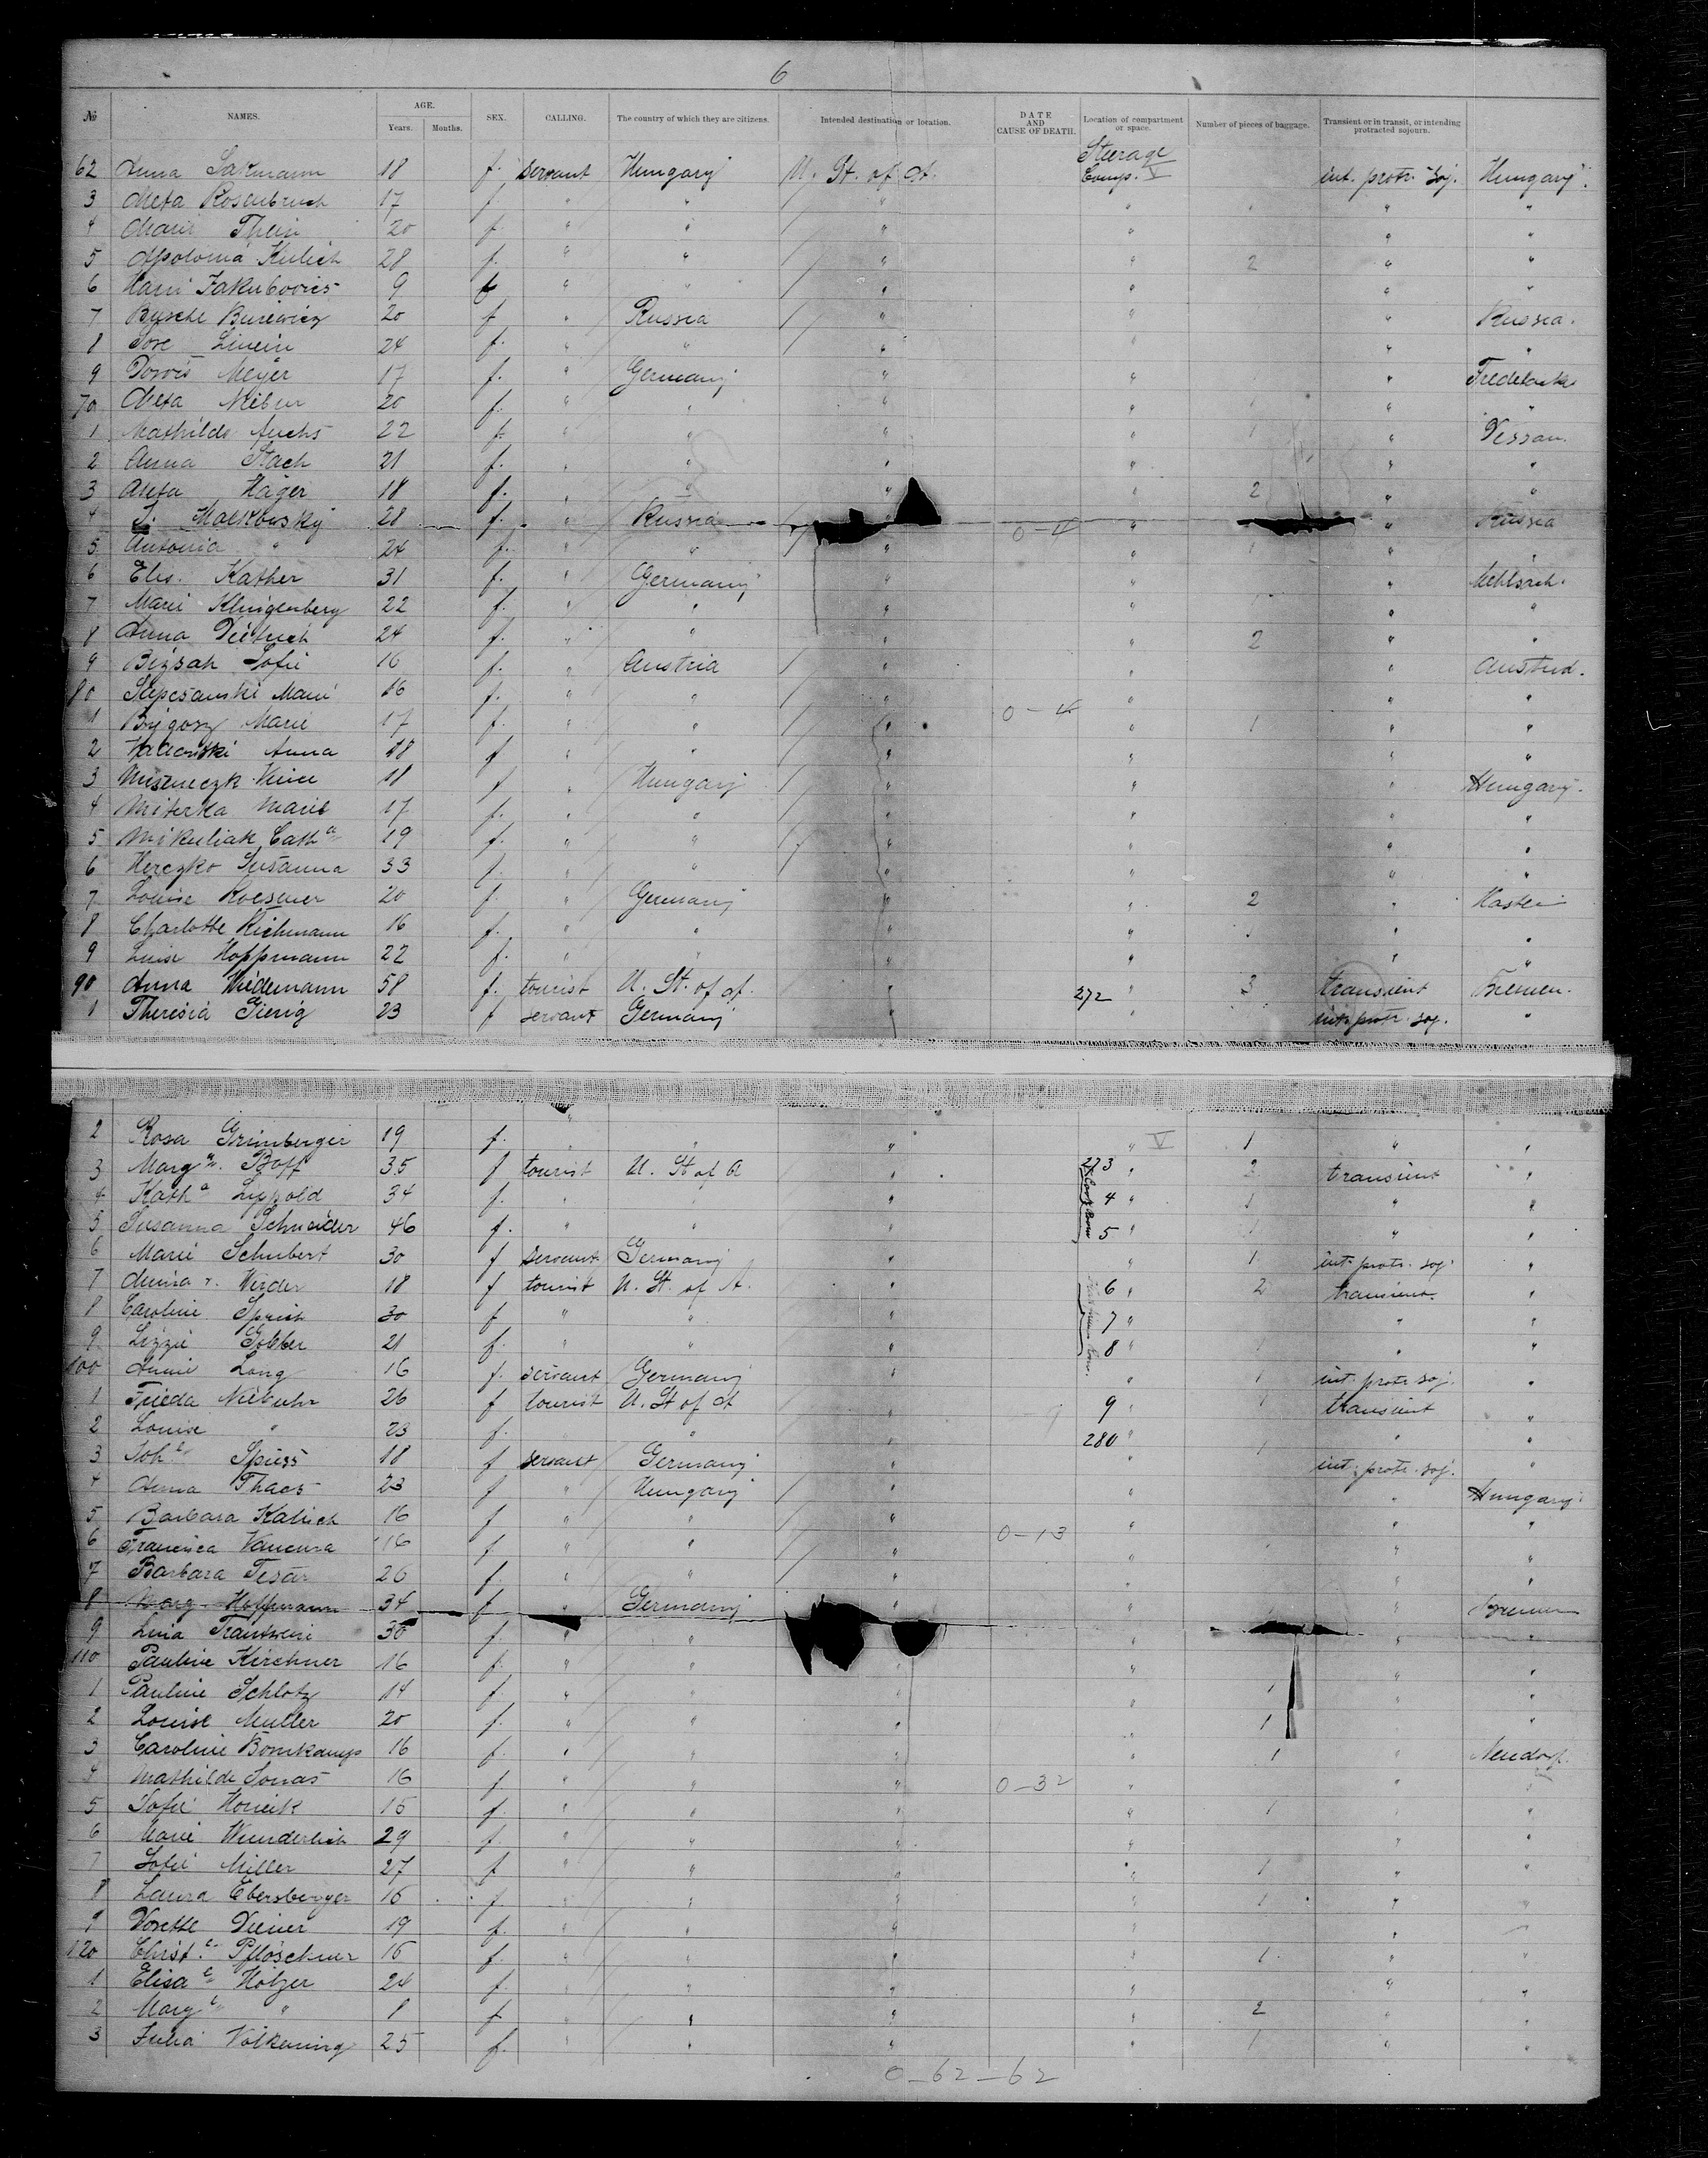 6
№ NAMES. AGE. Years. Months. SEX. CALLING. The country of which they are citizens. Intended destination or location. DATE AND CAUSE OF DEATH. Location of compartment or space. Number of pieces of baggage. Transient or in transit, or intending protracted sojourn.
Steerage
62 Anna Sakmann 18 f. servant Hungary U. St. of A. Comp. V int. protr. soj. Hungary.
3 Meta Rosenbruch 17 f. " " " " " "
4 Marie Thein 20 f. " " " " " "
5 Apolonia Kulich 28 f. " " " " 2 " "
6 Hani Jakubovics 9 f " " " " " "
7 Busche 20 f " Russia " " " Russia.
8 24 f. " " " " " "
9 Dorois Meyer 17 f. " Germany " " "
70 Meta 20 f. " " " " " "
1 Mathilde Fuchs 22 f. " " " " " Dessau.
2 Anna Stach 21 f. " " " " " "
3 Meta Hager 18 f. " " " " 2 " "
4 Malkowsky 28 f. " Russia " 0-4 " " Russia
5 Antonia " 24 f. " " " " 1 " "
6 Elis. Kather 31 f. " Germany " " " Mehlsack.
7 Marie Klingenberg 22 f. " " " " " "
8 Anna Dietrich 24 f. " " " " 2 " "
9 Sofie 16 f. " Austria " " " Austria.
80 Marie 16 f. " " " " " "
1 Marie 17 f. " " " 0-4 " 1 " "
2 Anna 18 f " " " " " "
3 18 f " Hungary " " " Hungary.
4 Miterka Marie 17 f. " " " " " "
5 Mikuliak Cath a 19 f. " " " " " "
6 Herczko Susanna 33 f. " " " " " "
7 Louise Roesener 20 f. " Germany " " 2 "
8 Charlotte Richmann 16 f. " " " " " "
9 Luise Hoppmann 22 f. " " " " " "
90 Anna Wiedemann 58 f. tourist U. St. of A. " 272 " 3 transient Bremen.
1 Theresia Gierig 23 f servant Germany " " int. protr. soj. "
2 Rosa Grimberger 19 f. " " " " V 1 " "
3 Marg. Boff 35 f tourist U. St of A " 273 " 2 transient "
4 Kath a Lippold 34 f. " " " 4 " 1 " "
5 Susanna Schneider 46 f. " " " 5 " 1 " "
6 Marie Schubert 30 f servant Germany " " 1 int. protr. soj. "
7 Anna v. Werder 18 f tourist U. St. of A. " 6 " 2 transient. "
8 Caroline 30 f " " " 7 " " "
9 Lizzie 21 f. " " " 8 " 1 " "
100 Annie Lang 16 f. servant Germany " " 1 int. protr. soj. "
1 Frieda Niebuhr 26 f tourist U. St of A " 9 " 1 transient "
2 Louise " 23 f. " " " 280 " " "
3 Joh Spiess 18 f servant Germany " " 1 int. protr. soj. "
4 Anna Thaes 23 f " Hungary " " " Hungary.
5 Barbara Kalisch 16 f " " " " " "
6 Vancura 16 f. " " " 0-13 " " "
7 Barbara Tesar 26 f. " " " " " "
8 Marg. Hoffmann 34 f " Germany " " " Bremen
9 Lina 30 f. " " " " " "
110 Pauline Kirchner 16 f. " " " " " "
1 Pauline Schlotz 14 f " " " " 1 " "
2 Louise Muller 20 f. " " " " 1 " "
3 Caroline Bomkamp 16 f. " " " " 1 " Neudorf.
4 Mathilde Jonas 16 f " " " 0-32 " " "
5 Sofie 15 f. " " " " 1 " "
6 Marie Wunderlich 29 f. " " " " " "
7 Sofie Miller 27 f " " " " 1 " "
8 Laura Ebersberger 16 f " " " " 1 " "
9 19 f. " " " " " "
120 Christ 16 f. " " " " 1 " "
1 Elisa Holzer 24 f. " " " " " "
2 Marg " 8 f " " " " 2 " "
3 Julia Volkening 25 f. " " " " 1 " "
0-62-62